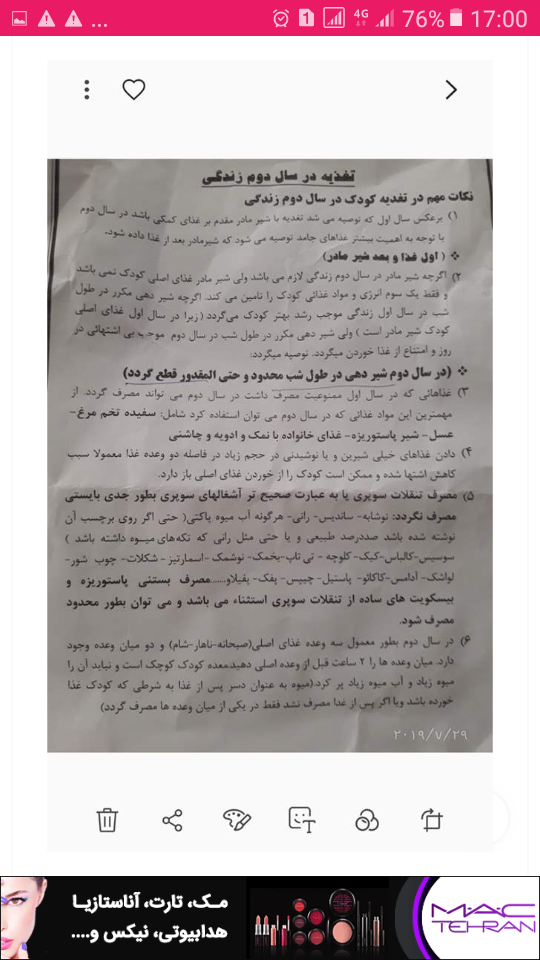 ... 1 4G 76% 17:00
تغذیه در سال دوم زندگی
نکات مهم در تغدیه کودک در سال دوم زندگی
۱) برعکس سال اول که توصیه می شد تغدیه با شیر مادر مقدم بر غذای کمکی باشد در سال دوم
با توجه به اهمیت بیشتر غذاهای جامد توصیه می شود که شیرمادر بعد از غذا داده شود.
❖ ( اول غذا و بعد شیر مادر)
۲) اگرچه شیر مادر در سال دوم زندگی لازم می باشد ولی شیر مادر غذای اصلی کودک نمی باشد
و فقط یک سوم انرژی و مواد غذائی کودک را تامین می کند. اگرچه شیر دهی مکرر در طول
شب در سال اول زندگی موجب رشد بهتر کودک می‌گردد ( زیرا در سال اول غذای اصلی
کودک شیر مادر است ) ولی شیر دهی مکرر در طول شب در سال دوم موجب بی اشتهائی در
روز و امتناع از غذا خوردن میگردد. توصیه میگردد:
❖ (در سال دوم شیر دهی در طول شب محدود و حتی المقدور قطع گردد)
۳) غذاهائی که در سال اول ممنوعیت مصرف داشت در سال دوم می تواند مصرف گردد. از
مهمترین این مواد غذائی که در سال دوم می توان استفاده کرد شامل: سفیده تخم مرغ-
عسل- شیر پاستوریزه- غذای خانواده با نمک و ادویه و چاشنی
۴) دادن غذاهای خیلی شیرین و یا نوشیدنی در حجم زیاد در فاصله دو وعده غذا معمولا سبب
کاهش اشتها شده و ممکن است کودک را از خوردن غذای اصلی باز دارد.
۵) مصرف تنقلات سوپری یا به عبارت صحیح تر آشغالهای سوپری بطور جدی بایستی
مصرف نگردد: نوشابه- ساندیس- رانی- هرگونه آب میوه پاکتی( حتی اگر روی برچسب آن
نوشته شده باشد صددرصد طبیعی و یا حتی مثل رانی که تکه‌های میوه داشته باشد )
سوسیس-کالباس-کیک- کلوچه - تی تاپ-یخمک- نوشمک -اسمارتیز- شکلات- چوب شور-
لواشک- آدامس- کاکائو- پاستیل- چیپس- پفک- بقیلاو......مصرف بستنی پاستوریزه و
بیسکویت های ساده از تنقلات سوپری استثناء می باشد و می توان بطور محدود
مصرف شود.
۶) در سال دوم بطور معمول سه وعده غذای اصلی(صبحانه-ناهار-شام) و دو میان وعده وجود
دارد. میان وعده ها را ۲ ساعت قبل از وعده اصلی دهید.معده کودک کوچک است و نباید آن را
میوه زیاد و آب میوه زیاد پر کرد.(میوه به عنوان دسر پس از غذا به شرطی که کودک غذا
خورده باشد ویا اگر پس از غدا مصرف نشد فقط در یکی از میان وعده ها مصرف گردد)
۲۰۱۹/۷/۲۹
T
مـک، تارت، آناستازیـا
هدابیوتی، نیکس و....
M·A·C
TEHRAN